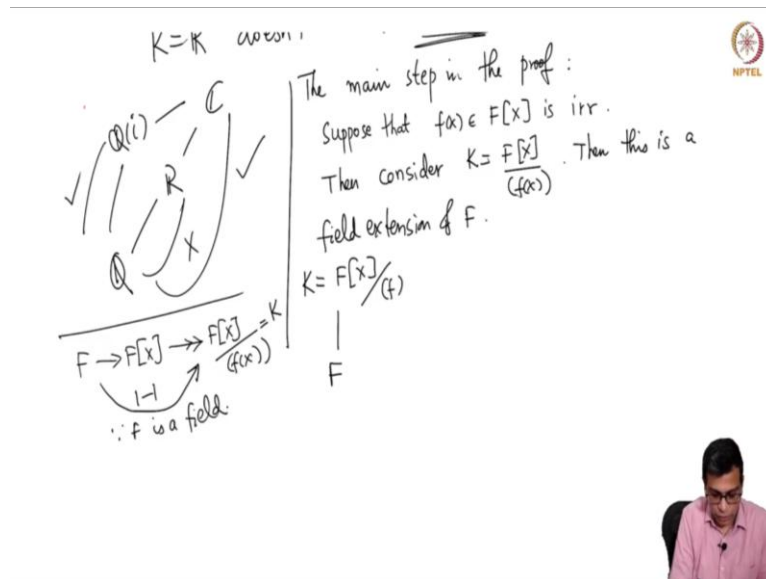 K=R doesn't
Q(i) — C
R
Q
✓ X ✓
F → F[x] ↠ F[x]/(f(x)) = K
1-1
∵ F is a field.
The main step in the proof :
Suppose that f(x) ∈ F[x] is irr.
Then consider K = F[x]/(f(x)) . Then this is a
field extension of F.
K = F[x]/(f)
|
F
NPTEL